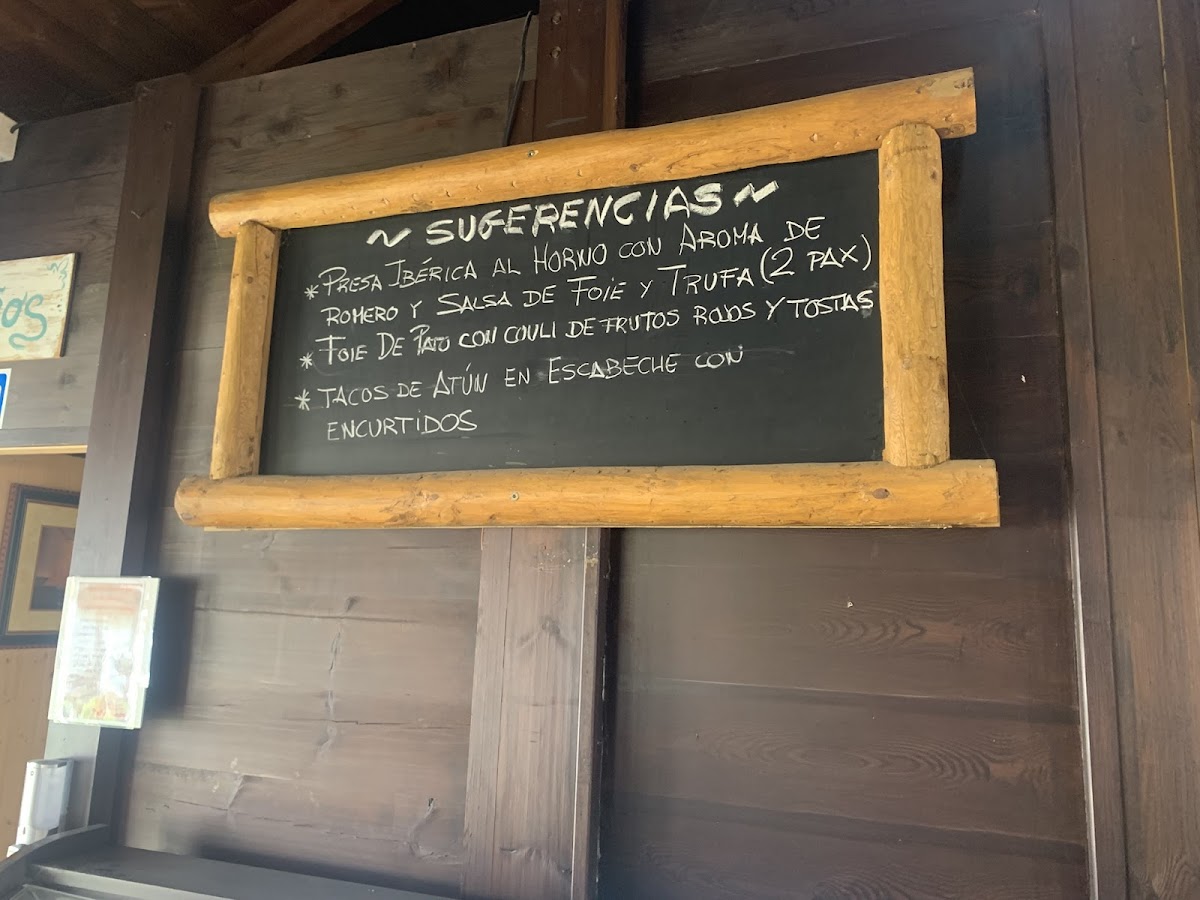 ~ SUGERENCIAS ~
* PRESA IBÉRICA AL HORNO CON AROMA DE
ROMERO Y SALSA DE FOIE Y TRUFA (2 PAX)
* FOIE DE PATO CON COULI DE FRUTOS ROJOS Y TOSTAS
* TACOS DE ATÚN EN ESCABECHE CON
ENCURTIDOS